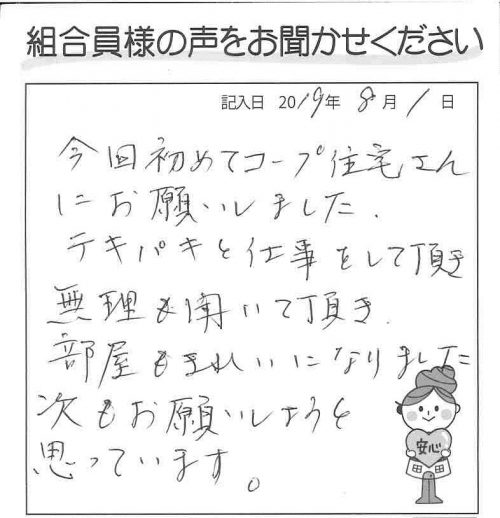 組合員様の声をお聞かせください
記入日 2019年 8月 1日
今回初めてコープ住宅さん
にお願いしました.
テキパキと仕事をして頂き
無理も聞いて頂き.
部屋もきれいになりました
次もお願いしようと
思っています。
安心